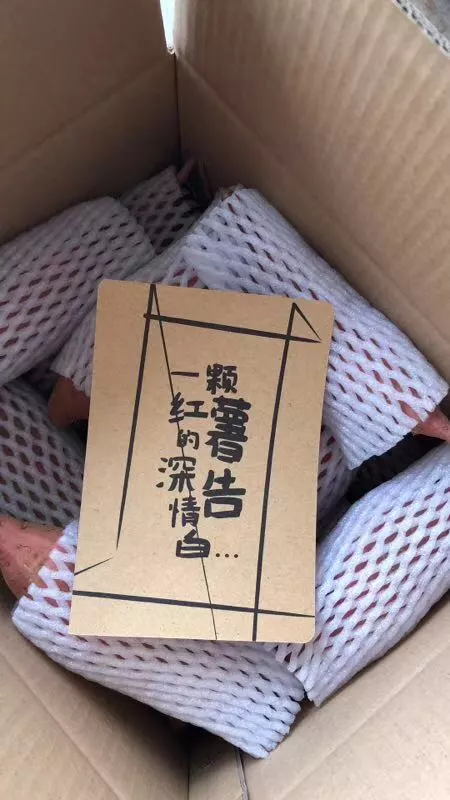 一颗
红薯
的
深情
告白...